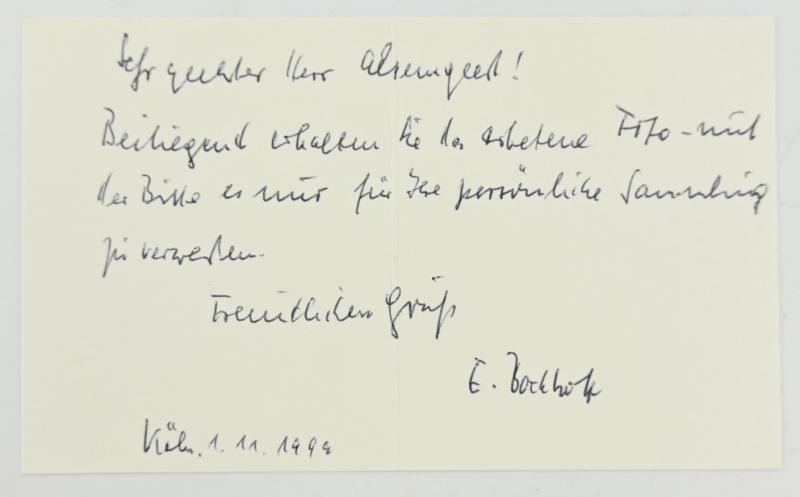 Sehr geehrter Herr Alsemgeest!
Beiliegend erhalten Sie das erbetene Foto - mit
der Bitte es nur für Ihre persönliche Sammlung
zu verwerten.
Freundlichen Gruß
E. Bockholt
Köln, 1. 11. 1999